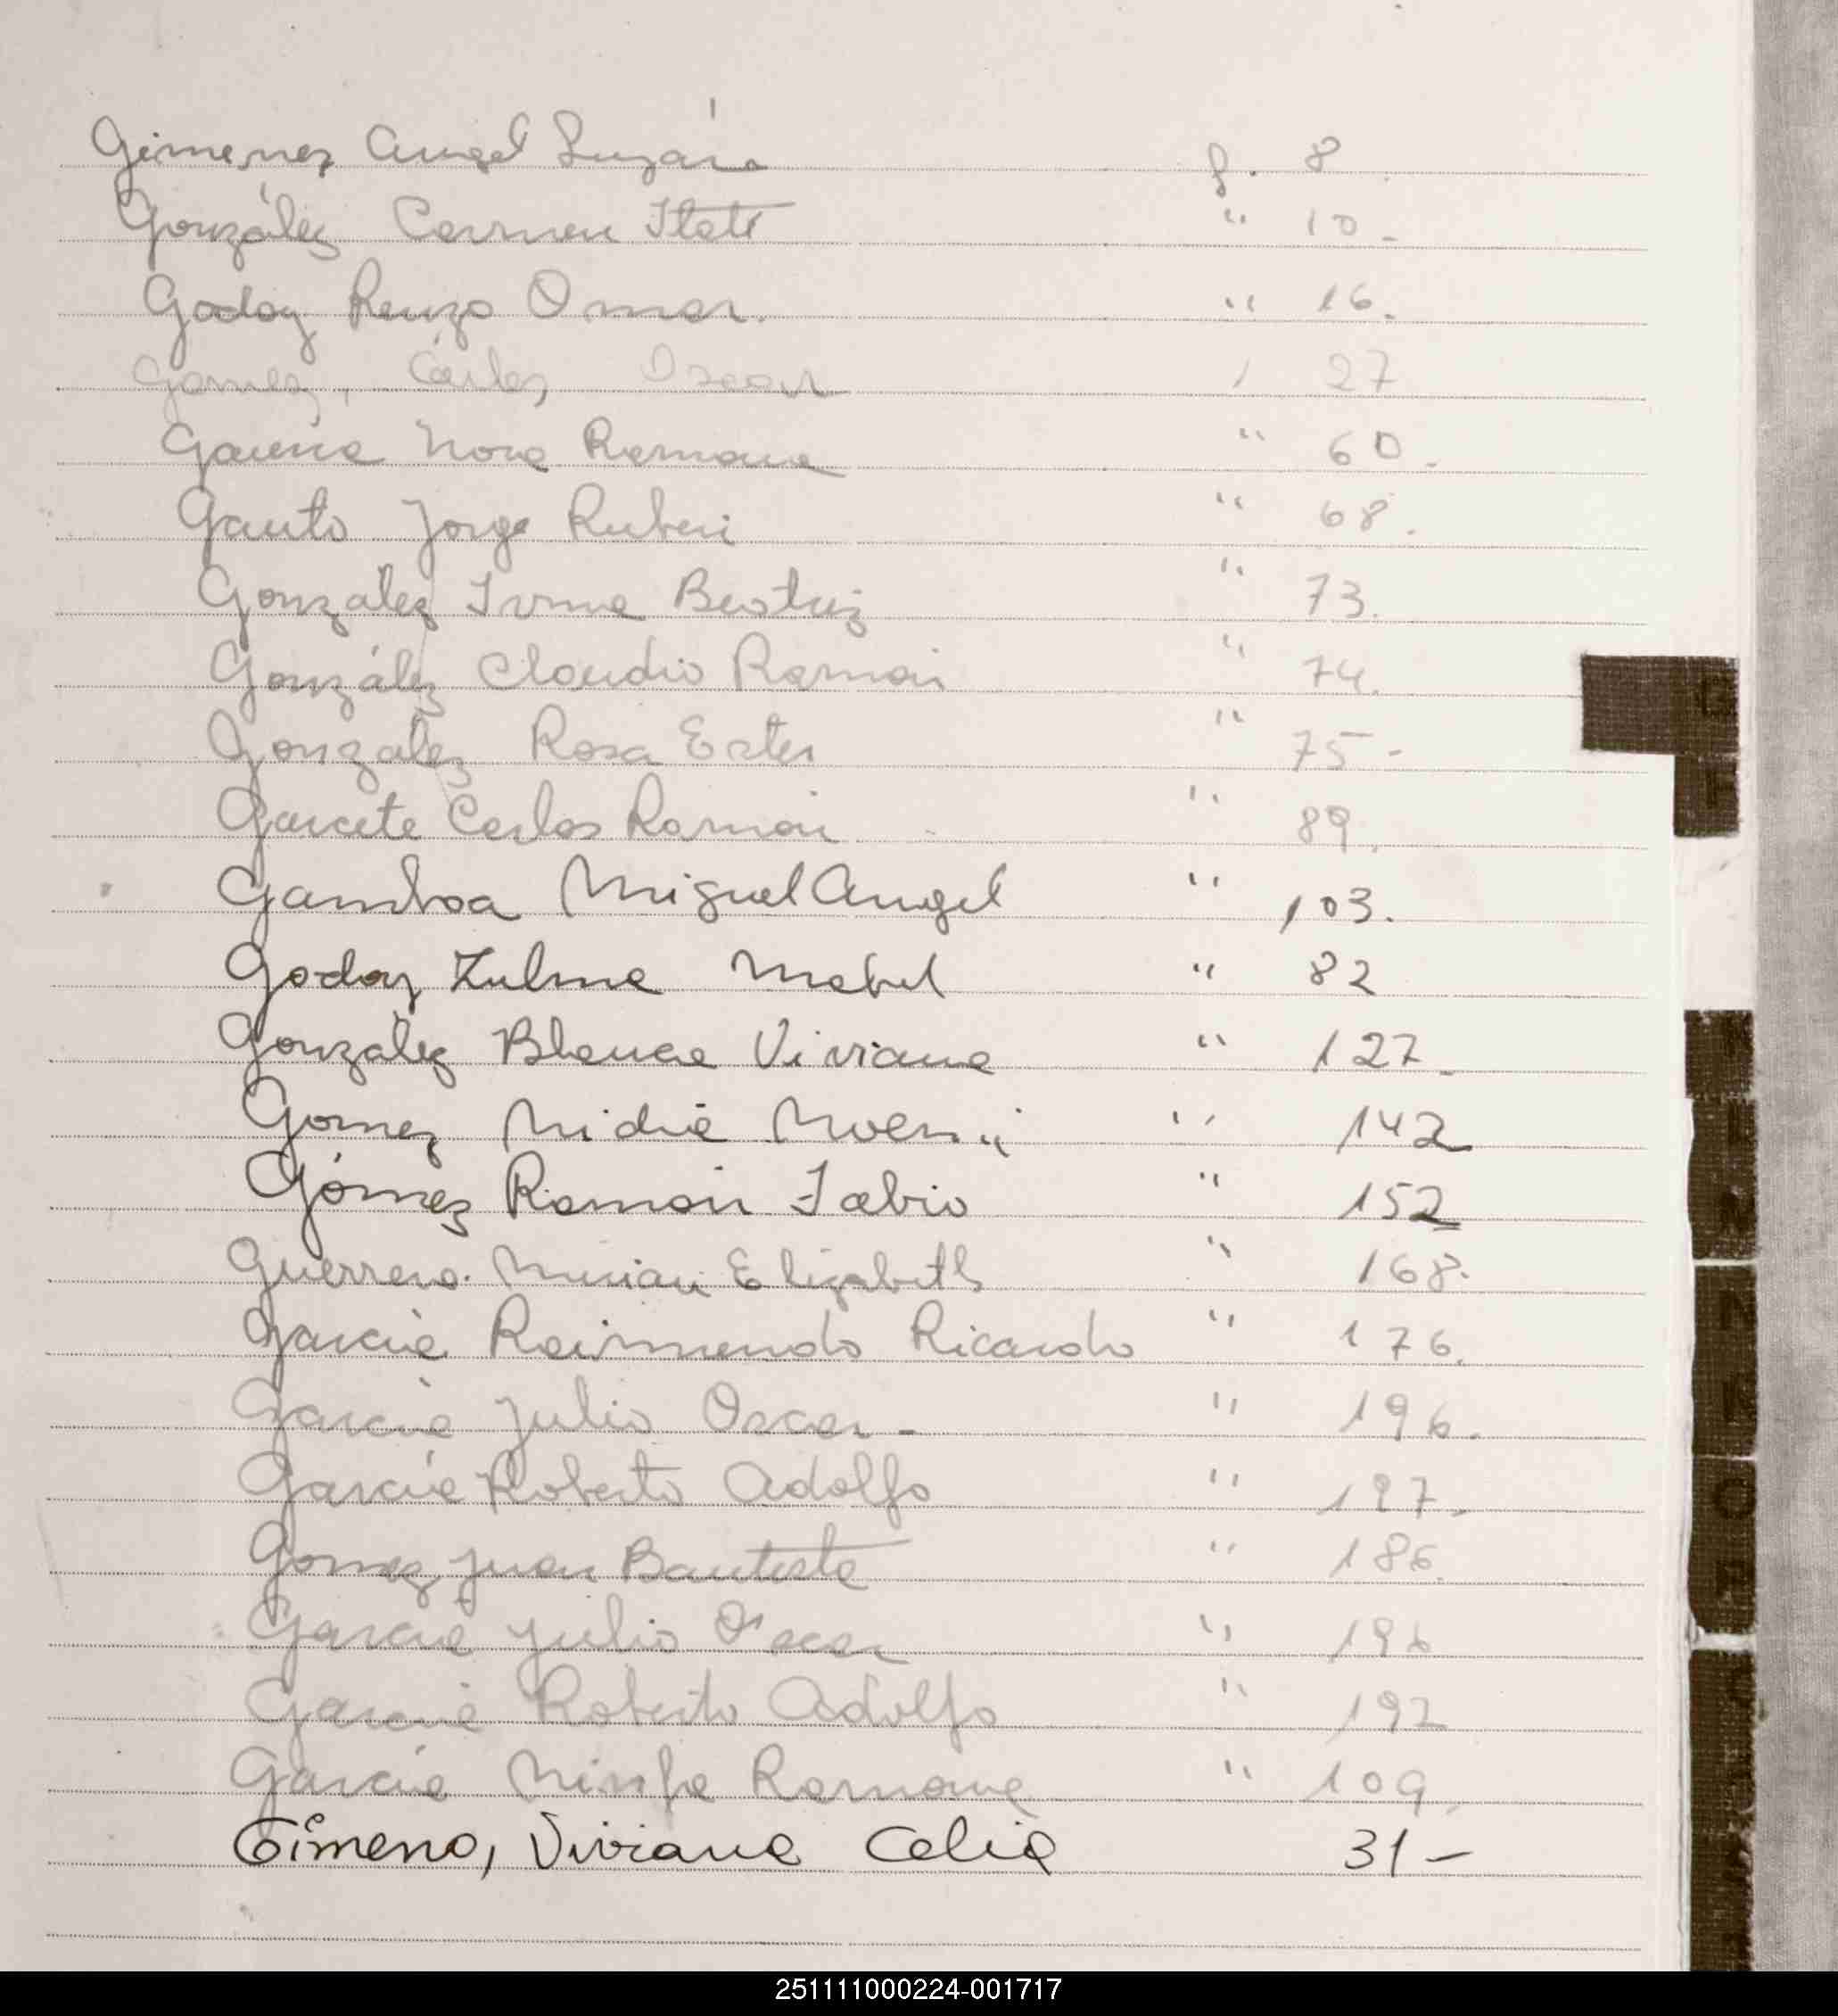 Gimenez Angel f. 8
González Carmen Itatí " 10-
Godoy Renzo Omar. " 16.
Gomez, Carlos Oscar " 27
García Nora Ramona " 60.
Gauto Jorge Rubén " 68.
Gonzalez Irma Beatriz " 73.
González Claudio Ramón " 74.
Gonzalez Rosa Ester " 75-
Garcete Carlos Ramón " 89.
Gamboa Miguel Angel " 103.
Godoy Zulma Mabel " 82
González Blanca Viviana " 127-
Gomez Nidia " 142
Gómez Ramón Fabio " 152
Guerrero Mirian Elizabeth " 168.
García Raimundo Ricardo " 176.
García Julio Oscar - " 196.
García Roberto Adolfo " 197-
Gomez Juan Bautista " 186.
García Julio Oscar " 196
García Roberto Adolfo " 197
García Ninfa Ramona " 109.
Gimeno, Viviana Celia 31-
251111000224-001717